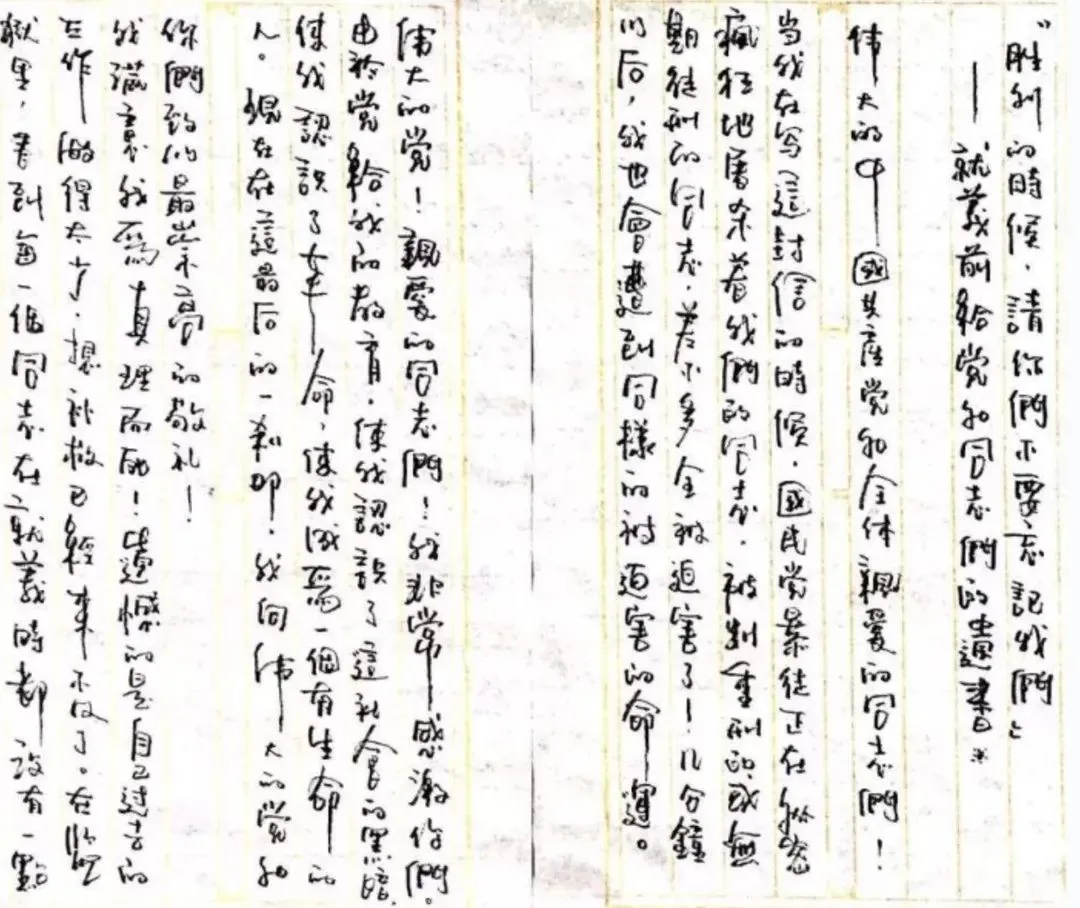 “胜利的時候，請你們不要忘記我們”
——就義前給党和同志們的遺書*
伟大的中國共産党和全体親愛的同志們！
当我在写這封信的時候，國民党暴徒正在秘密
瘋狂地屠杀着我們的同志，被判重刑的或無
期徒刑的同志，差不多全被迫害了！几分鐘
以后，我也會遭到同様的被迫害的命運。
偉大的党！親愛的同志們！我非常感激你們。
由於党給我的教育，使我認識了這社會的黑暗，
使我認識了革命，使我成爲一個有生命的
人。現在在這最后的一刹那，我向偉大的党和
你們致以最崇高的敬礼！
我滿意我爲真理而死！遺憾的是自己過去的
工作做得太少，想补救已經來不及了。在監
獄里，看到每一個同志在就義時都没有一點